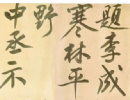 題李成
寒林平
野
中丞示